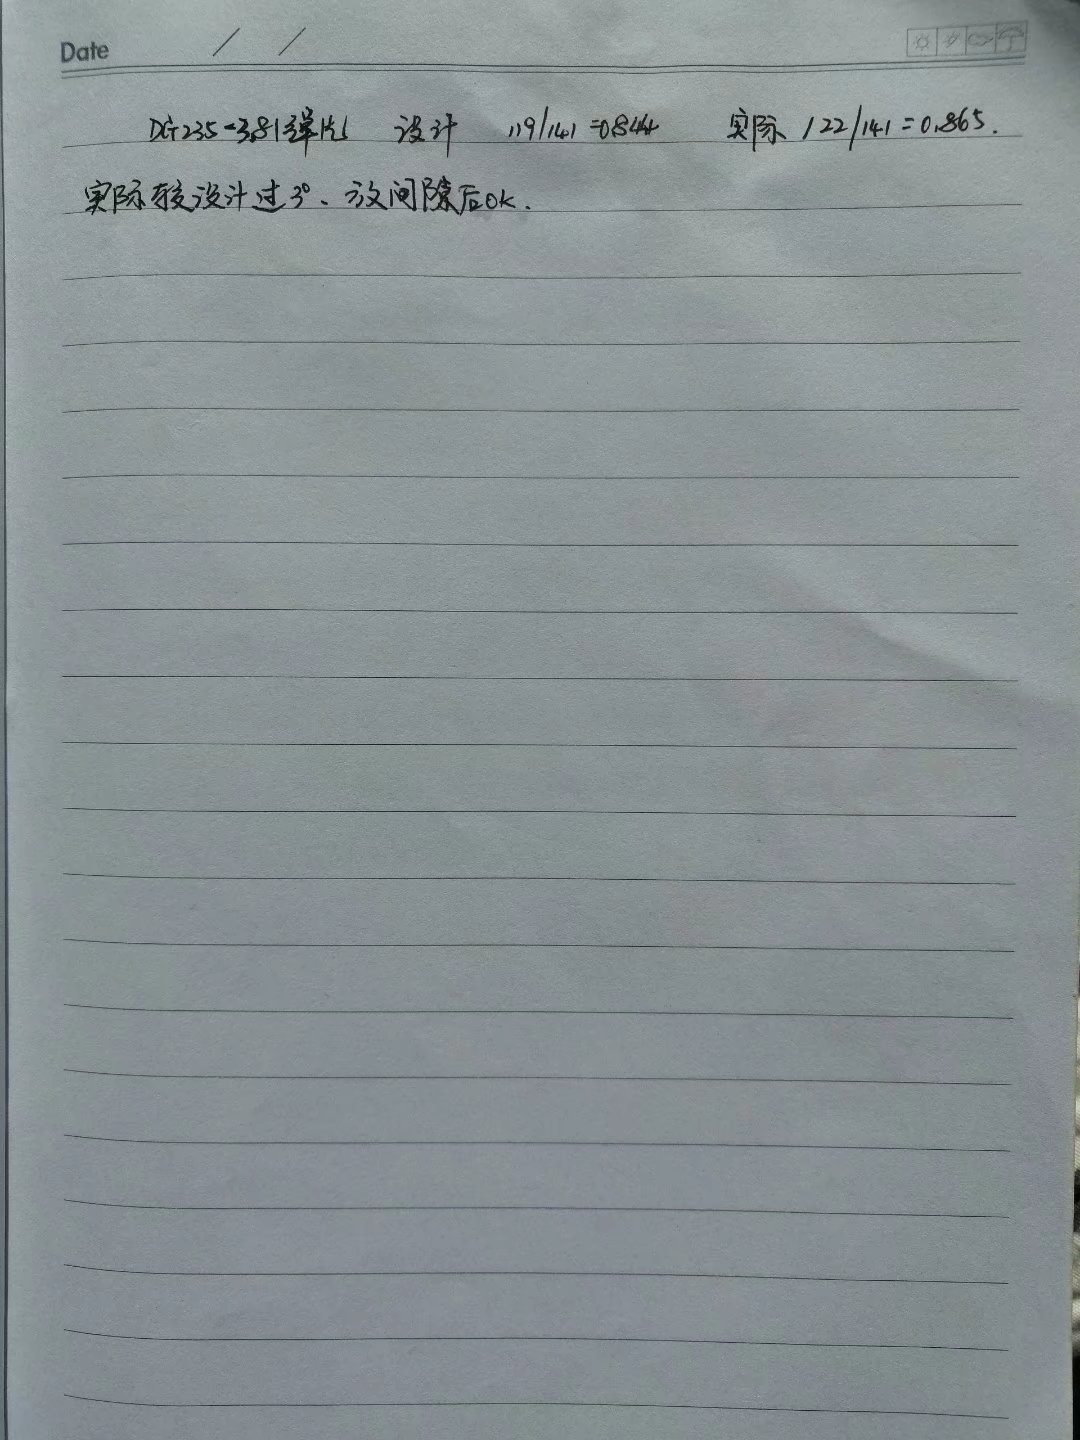 Date / /
DG235-381弹片 设计 119/141=0.844 实际 122/141=0.865.
实际较设计过3°、放间隙后OK.